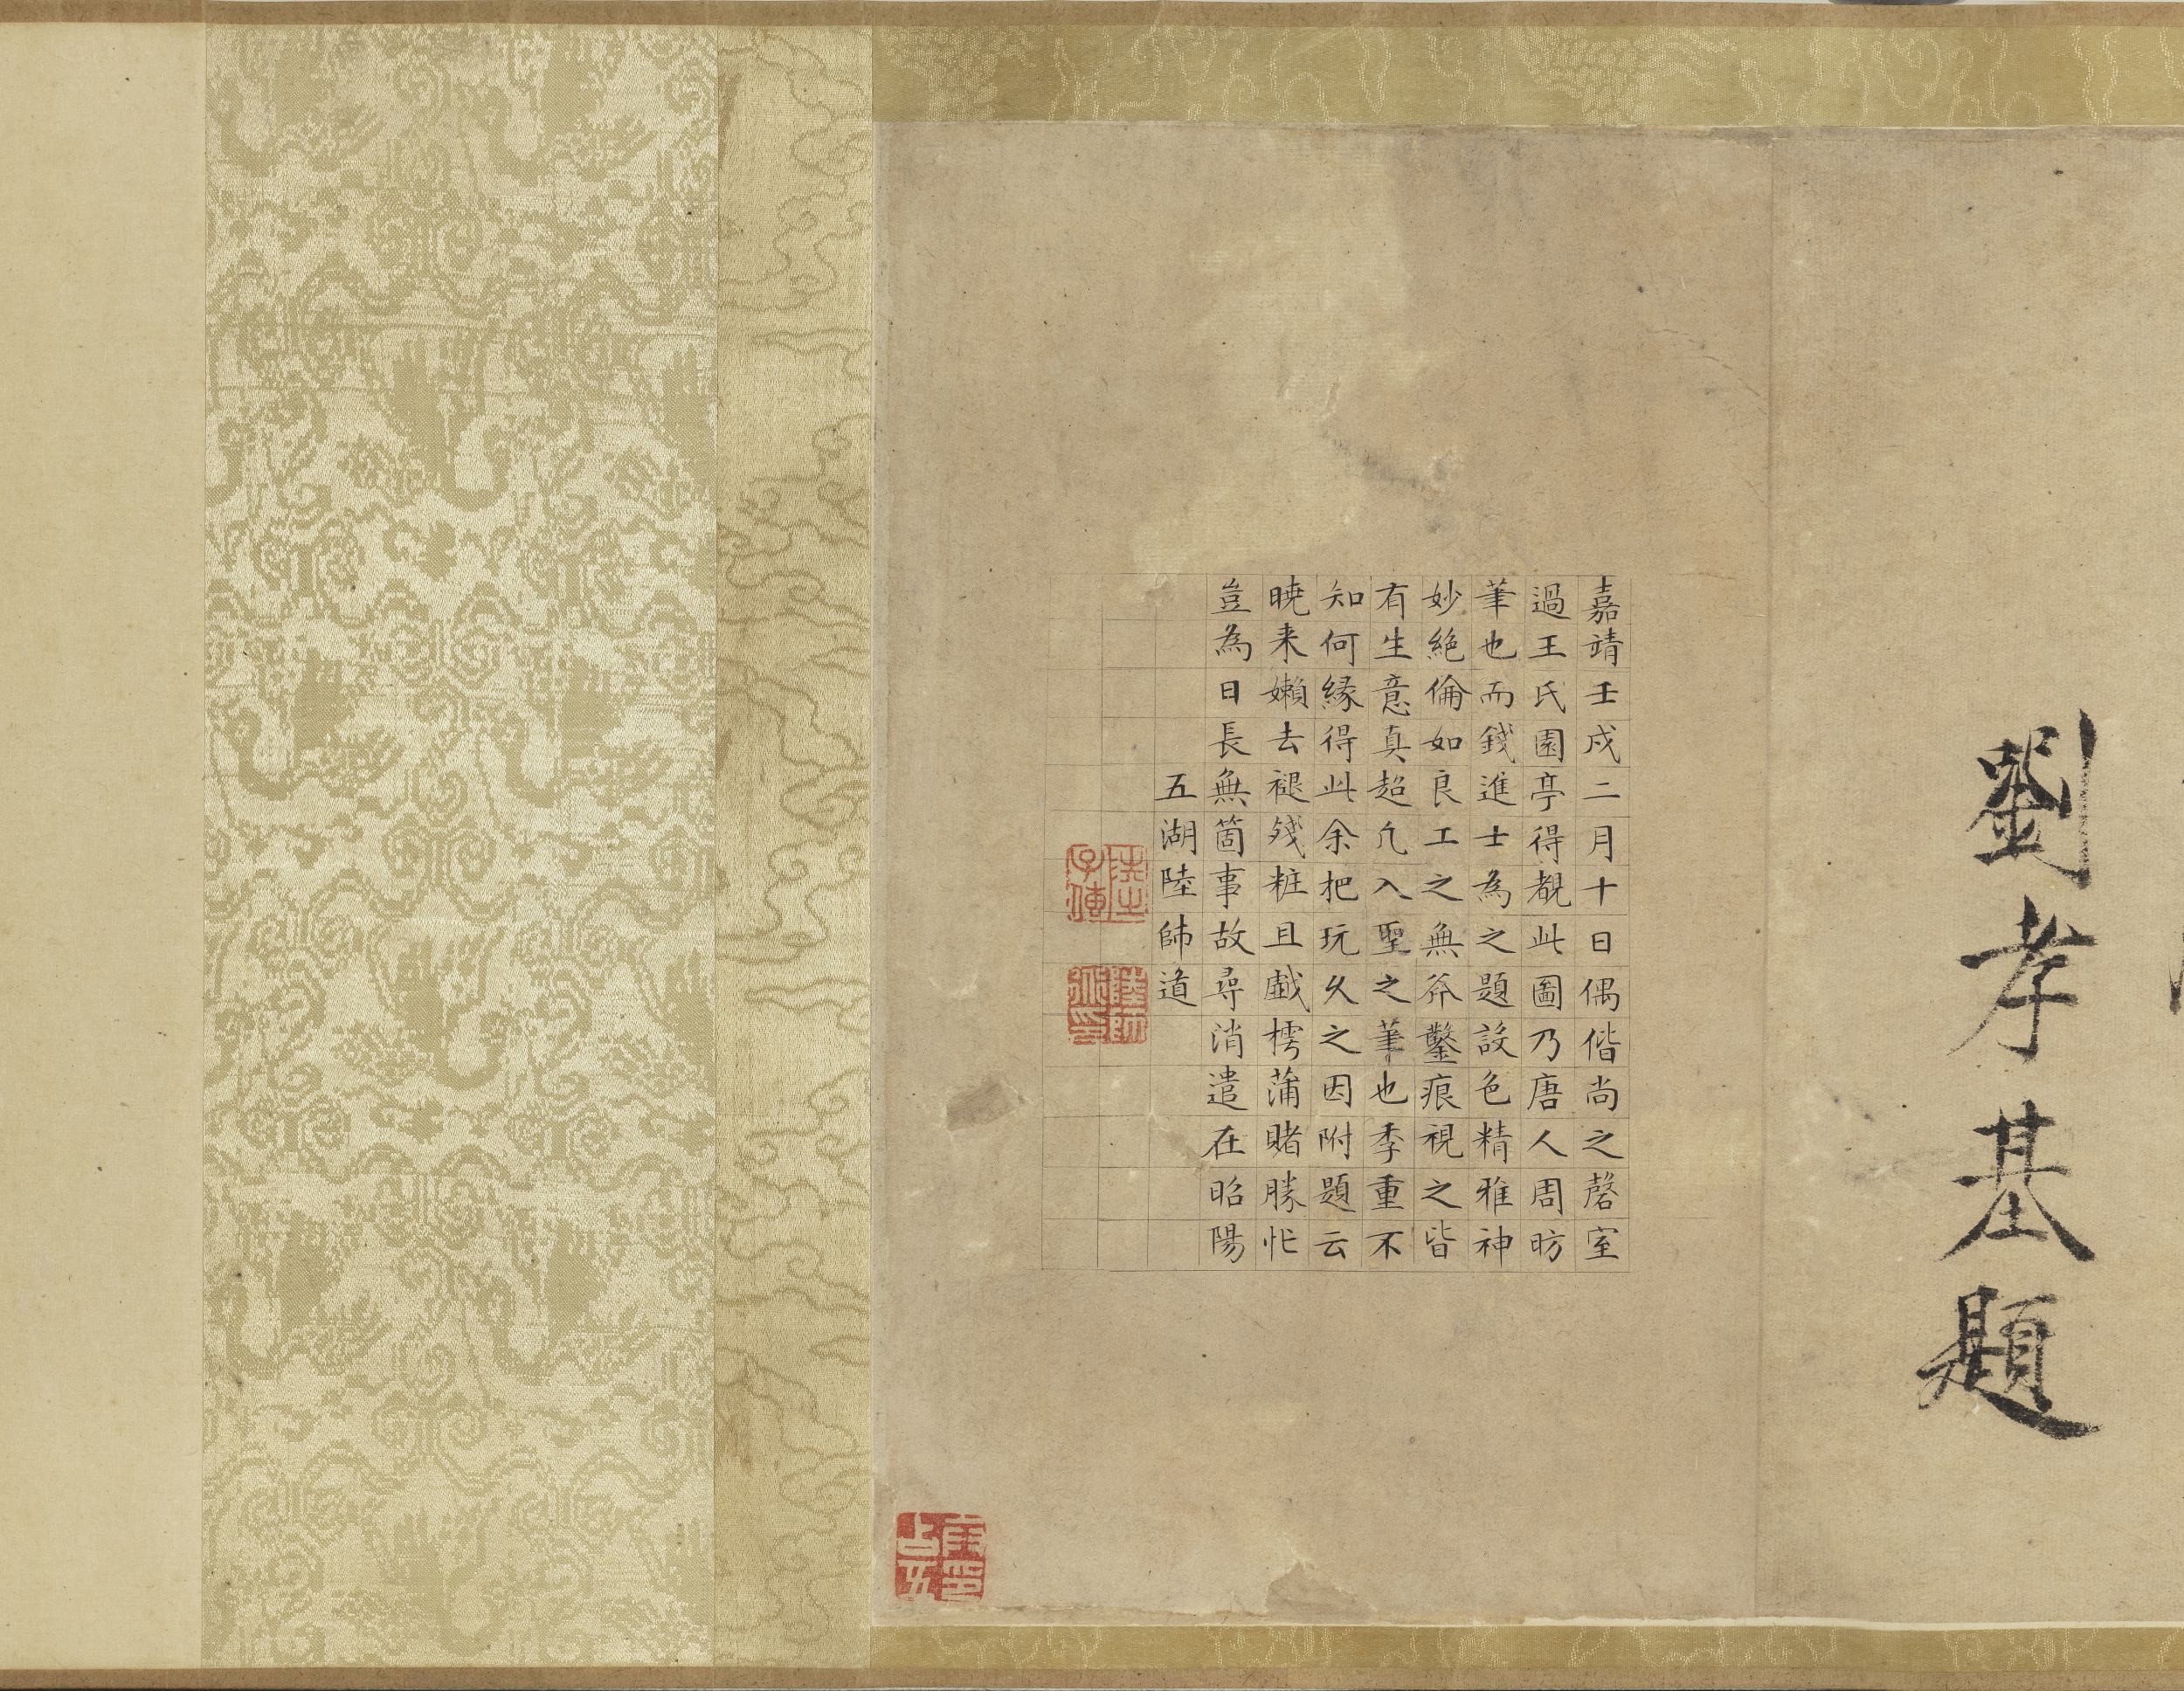 劉孝基題
嘉靖壬戌二月十日偶偕尚之磬室
過王氏園亭得覩此圖乃唐人周昉
筆也而錢進士為之題設色精雅神
妙絕倫如良工之無斧鑿痕視之皆
有生意真超凢入聖之筆也季重不
知何緣得此余把玩久之因附題云
曉来嬾去褪殘粧且戯樗蒲賭勝忙
豈為日長無箇事故尋消遣在昭陽
五湖陸師道
陸師道印